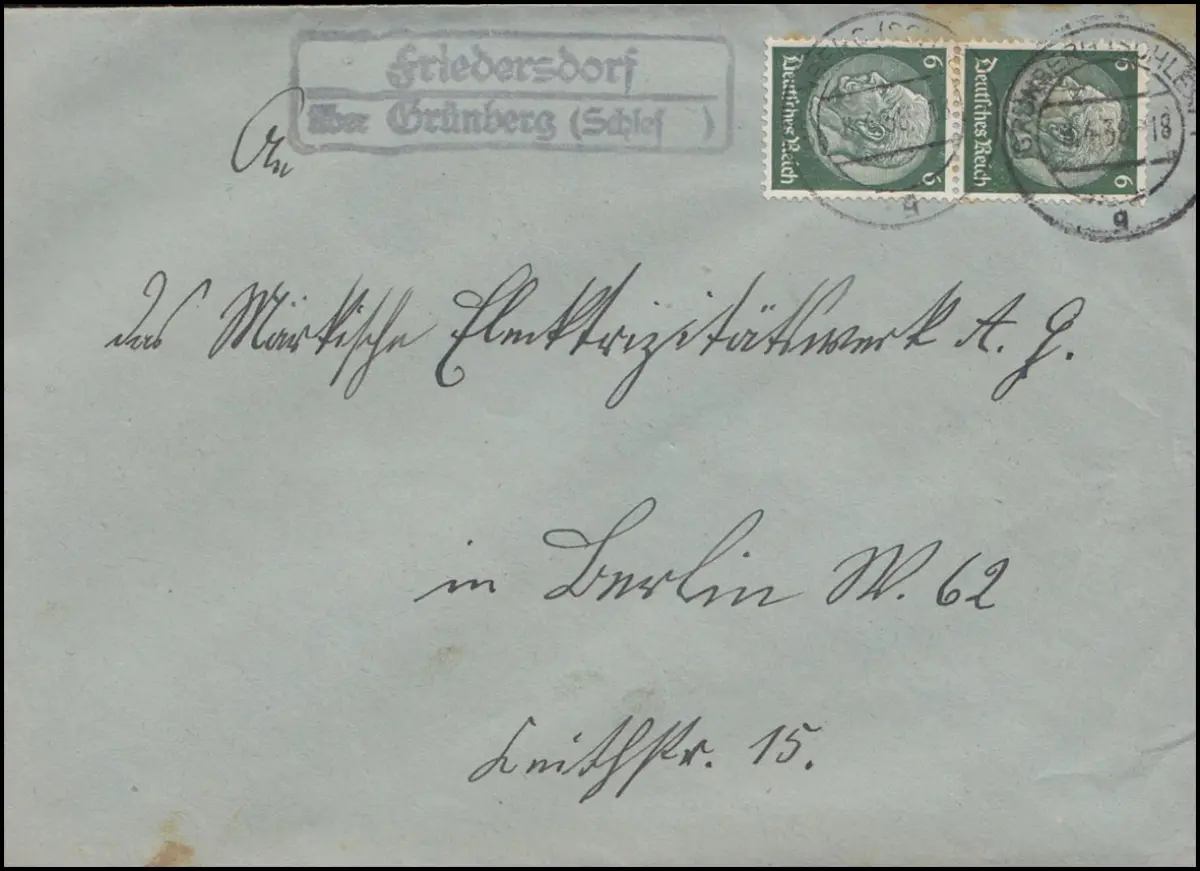 Friedersdorf
über Grünberg (Schles )
6
Deutsches Reich
6
6
Deutsches Reich
6
GRÜNBERG (SCHLES
18
g
g
An
das Märkische Elektrizitätswerk A. G.
in Berlin W. 62
Keithstr. 15.